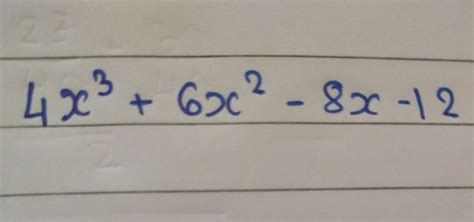 4x³ + 6x² - 8x - 12